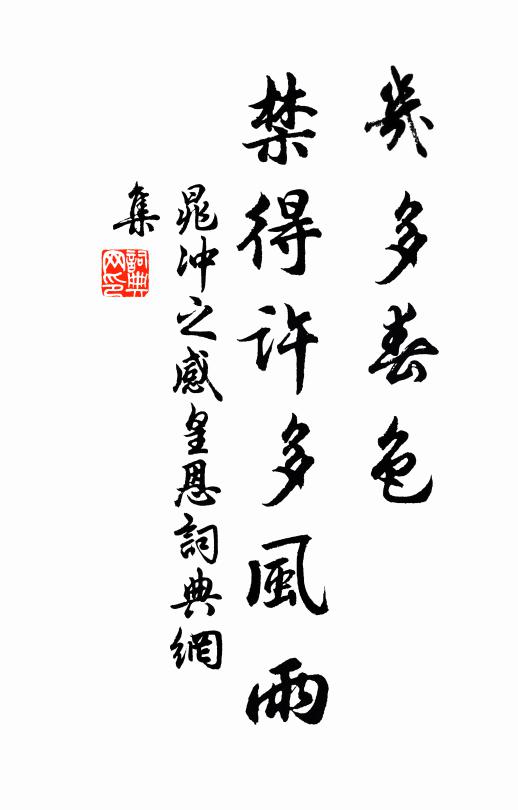 幾多春色
禁得許多風雨
晁沖之感皇恩詞典網
集
詞典
网印